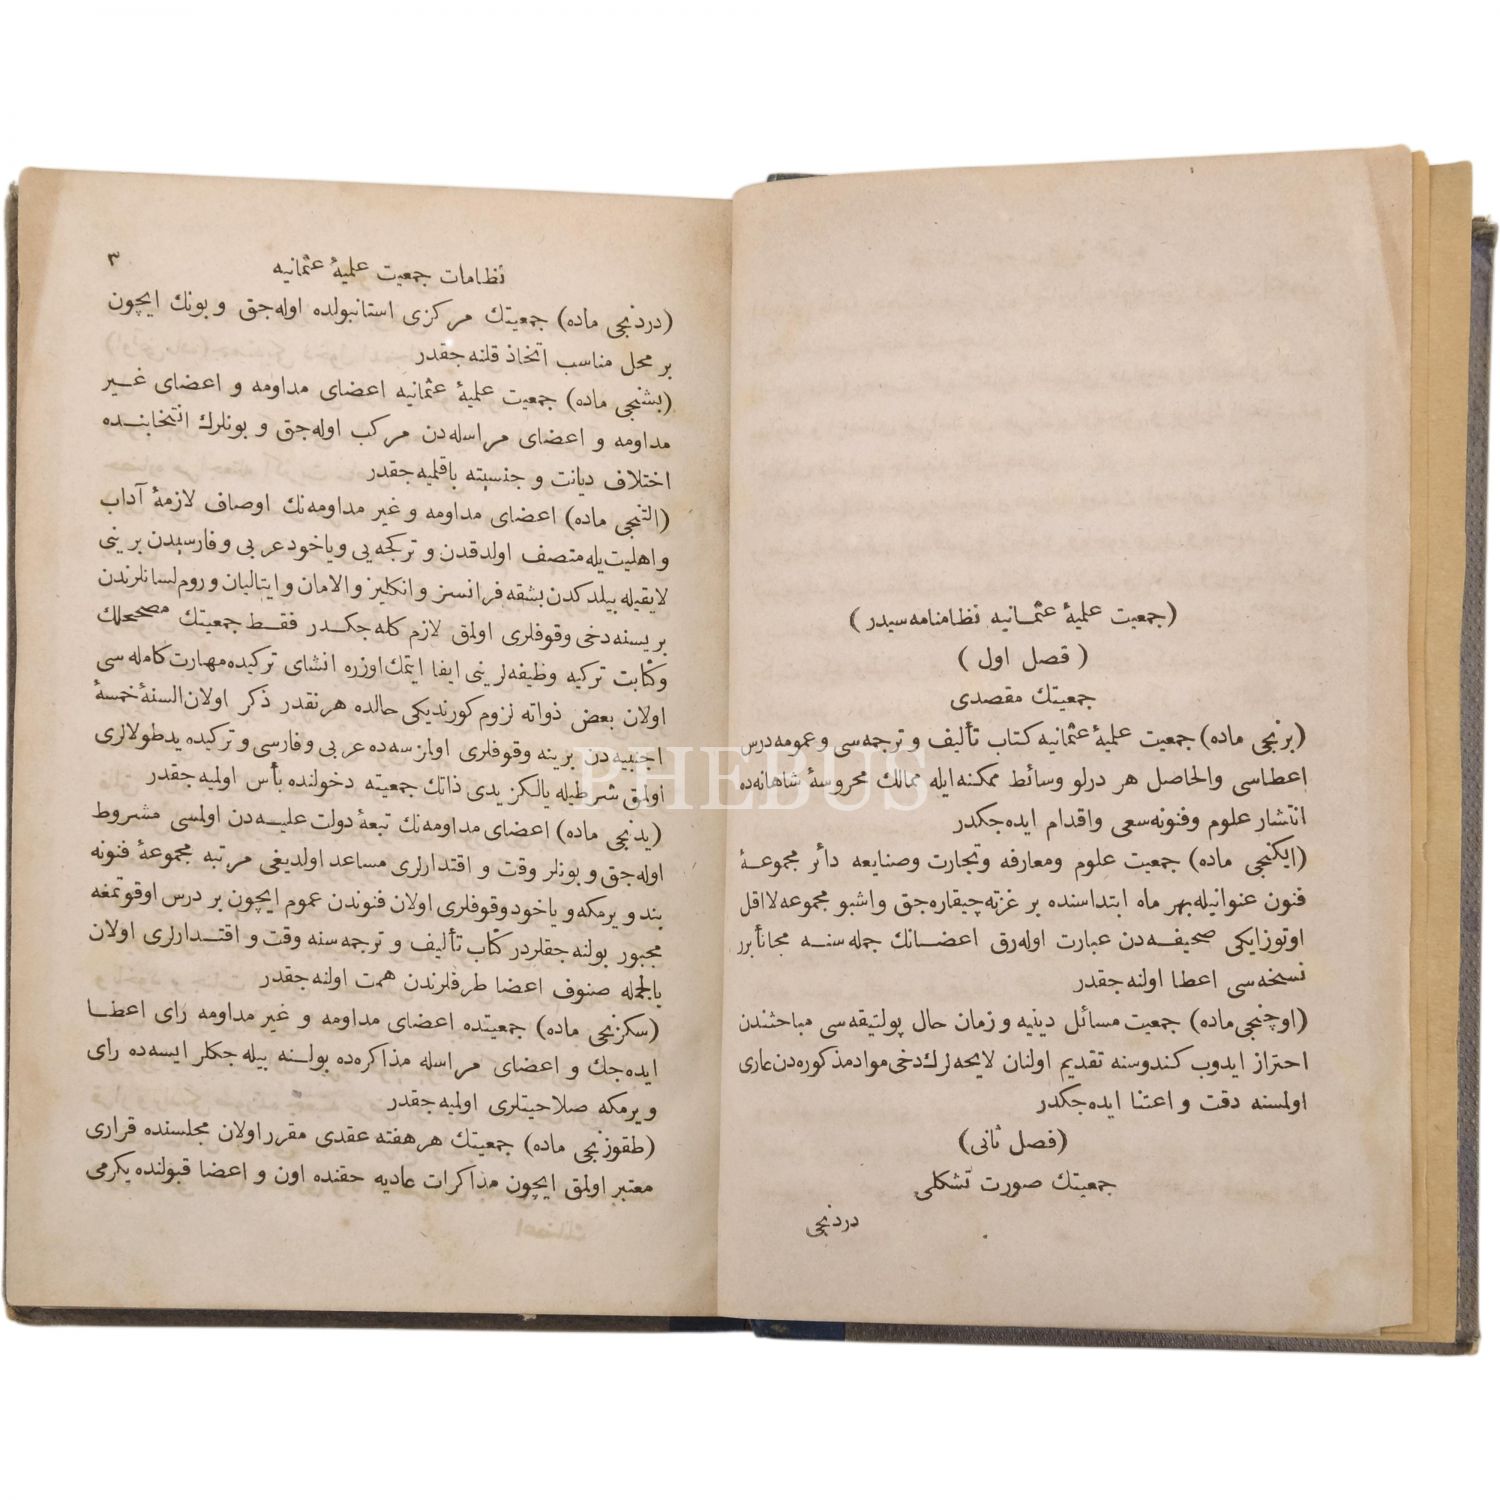 (جمعیت علمیهٔ عثمانیه نظامنامه سیدر)
( فصل اول )
جمعیتك مقصدی
(برنجی ماده) جمعیت علمیهٔ عثمانیه کتاب تألیف و ترجمه سی و عمومه درس
اعطاسی والحاصل هر درلو وسائط ممکنه ایله ممالك محروسهٔ شاهانه ده
انتشار علوم وفنونه سعی واقدام ایده جکدر
(ایکنجی ماده) جمعیت علوم ومعارفه وتجارت وصنایعه دائر مجموعهٔ
فنون عنوانیله بهر ماه ابتداسنده بر غزته چیقاره جق واشبو مجموعه لااقل
اوتوز ایکی صحیفه دن عبارت اوله رق اعضانك جمله سنه مجاناً برر
نسخه سی اعطا اولنه جقدر
(اوچنجی ماده) جمعیت مسائل دینیه و زمان حال پولتیقه سی مباحثندن
احتراز ایدوب کندوسنه تقدیم اولنان لایحه لرك دخی مواد مذکوره دن عاری
اولمسنه دقت و اعتنا ایده جکدر
(فصل ثانی)
جمعیتك صورت تشکلی
دردنجی
نظامات جمعیت علمیهٔ عثمانیه ٣
(دردنجی ماده) جمعیتك مرکزی استانبولده اوله جق و بونك ایچون
بر محل مناسب اتخاذ قلنه جقدر
(بشنجی ماده) جمعیت علمیهٔ عثمانیه اعضای مداومه و اعضای غیر
مداومه و اعضای مراسله دن مرکب اوله جق و بونلرك انتخابنده
اختلاف دیانت و جنسیته باقلمیه جقدر
(التنجی ماده) اعضای مداومه و غیر مداومه نك اوصاف لازمهٔ آداب
واهلیت یله متصف اولدقدن و ترکجه یی ویاخود عربی و فارسیدن برینی
لایقیله بیلدکدن بشقه فرانسز و انکلیز والامان وایتالیان وروم لسانلرندن
بریسنه دخی وقوفلری اولمق لازم کله جکدر فقط جمعیتك مصححلك
وکتابت ترکیه وظیفه لرینی ایفا ایتمك اوزره انشای ترکیده مهارت کامله سی
اولان بعض ذواته لزوم کورندیکی حالده هر نقدر ذکر اولان السنهٔ خمسهٔ
اجنبیه دن برینه وقوفلری اولمز سه ده عربی وفارسی و ترکیده یدطولالری
اولمق شرطیله یالکز یدی ذاتك جمعیته دخولنده بأس اولمیه جقدر
(یدنجی ماده) اعضای مداومه نك تبعهٔ دولت علیه دن اولمسی مشروط
اوله جق و بونلر وقت و اقتدارلری مساعد اولدیغی مرتبه مجموعهٔ فنونه
بند ویرمکه ویاخود وقوفلری اولان فنوندن عموم ایچون بر درس اوقوتمغه
مجبور بولنه جقلردر کتاب تألیف و ترجمه سنه وقت و اقتدارلری اولان
بالجمله صنوف اعضا طرفلرندن همت اولنه جقدر
(سکزنجی ماده) جمعیتده اعضای مداومه و غیر مداومه رای اعطا
ایده جك و اعضای مراسله مذاکره ده بولنه بیله جکلر ایسه ده رای
ویرمکه صلاحیتلری اولمیه جقدر
(طقوزنجی ماده) جمعیتك هر هفته عقدی مقرر اولان مجلسنده قراری
معتبر اولمق ایچون مذاکرات عادیه حقنده اون و اعضا قبولنده یکرمی
اعضانك
PHEBUS